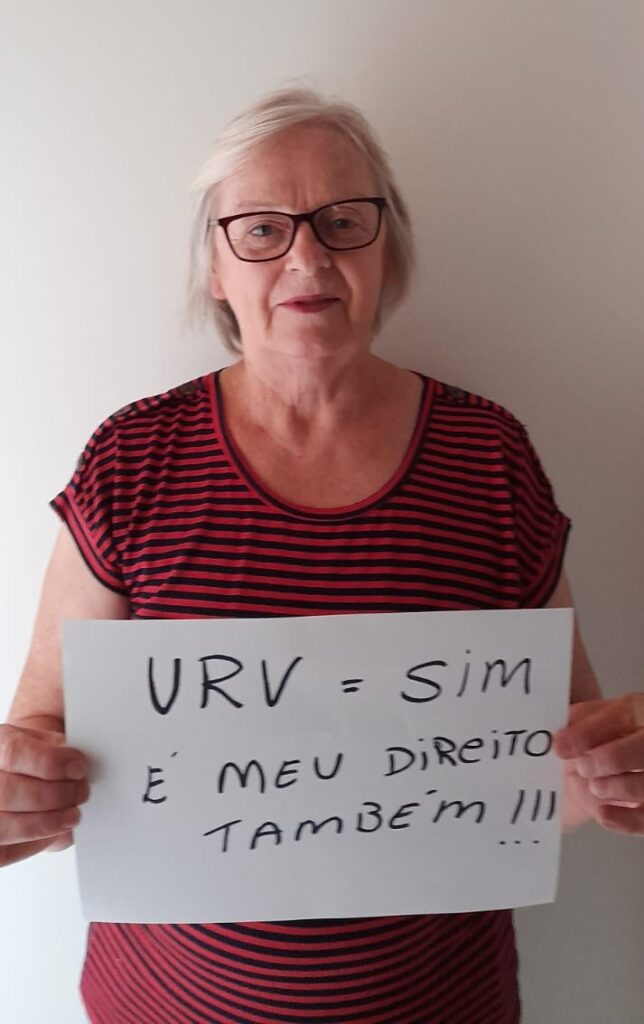 URV = SIM
É MEU DIREITO
TAMBÉM !!!